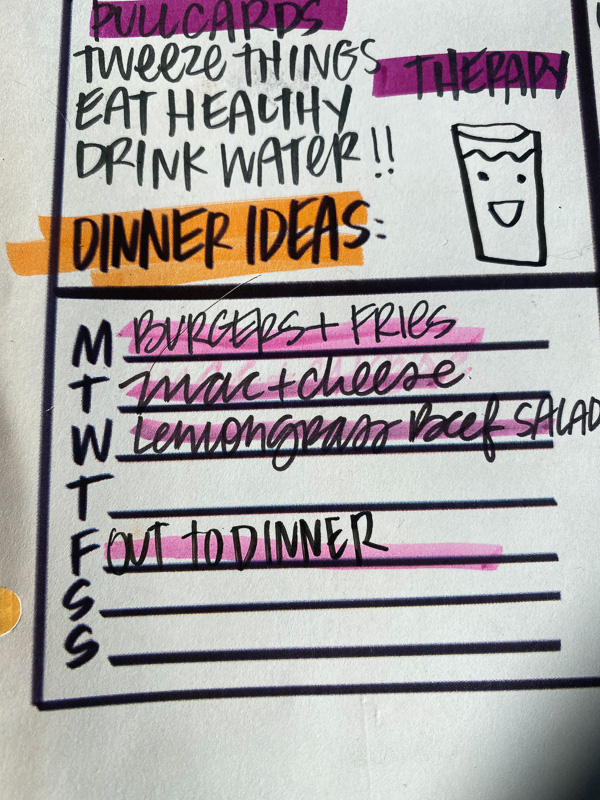 PULL CARDS
TWEEZE THINGS
THERAPY
EAT HEALTHY
DRINK WATER!!
DINNER IDEAS:
M BURGERS + FRIES
T mac + cheese
W Lemongrass Beef SALAD
T
F OUT TO DINNER
S
S